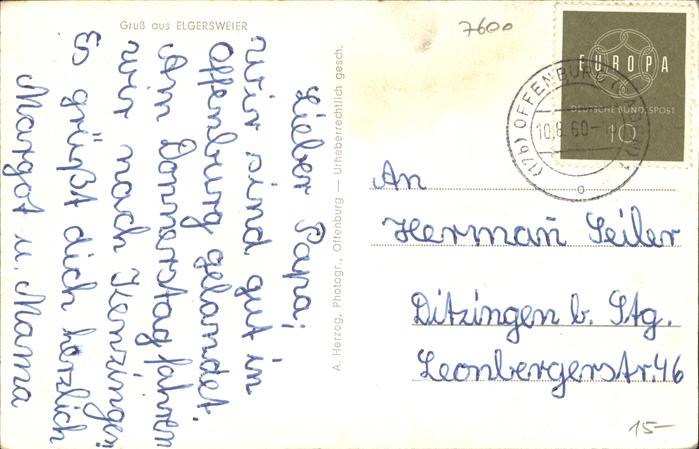 Gruß aus ELGERSWEIER
7600
Lieber Papa!
wir sind gut in
Offenburg gelandet.
Am Donnerstag fahren
wir nach Kenzingen
Es grüßt dich herzlich
Margot u. Mama
A. Herzog, Photogr., Offenburg — Urheberrechtlich gesch.
EUROPA
DEUTSCHE BUNDESPOST
10
(17b) OFFENBURG
10.8.60-
An
Herman̄ Seiler
Ditzingen b. Stg.
Leonbergerstr. 46
15-